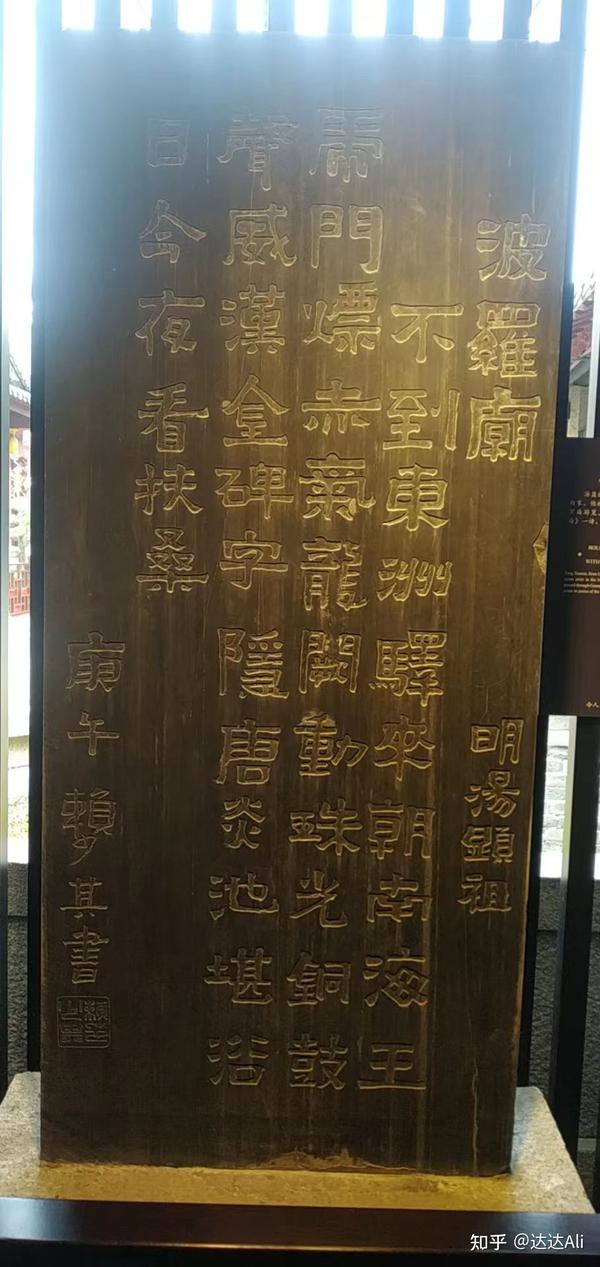 波羅廟 明湯顯祖
不到東洲驛來朝南海王
虎門熛赤氣龍闕動珠光銅鼓
聲威漢金碑字隱唐炎池堪浴
日今夜看扶桑
庚午 賴少其書
知乎 @达达Ali